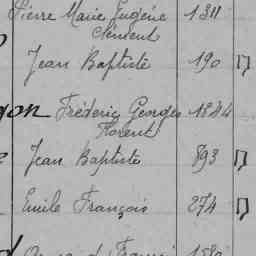 Pierre Marie Eugène 1311
Clément
Jean Baptiste 190
Frédéric Georges 1844
Florent
Jean Baptiste 893
Emile François 274